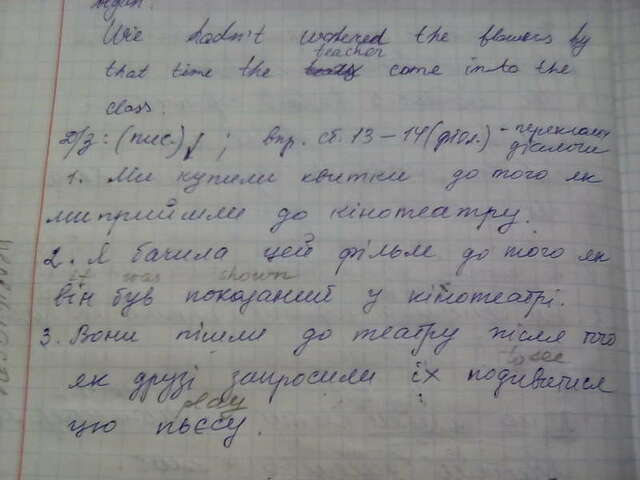 We hadn't watered the flowers by
teacher
that time the come into the
class.
Д/з: (пис.) ; впр. ст. 13 – 14 (діал.) - переклади
діалоги
1. Ми купили квитки до того як
ми прийшли до кінотеатру.
2. Я бачила цей фільм до того як
it was shown
він був показаний у кінотеатрі.
3. Вони пішли до театру після того
to see
як друзі запросили їх подивитися
play
цю пьєсу.